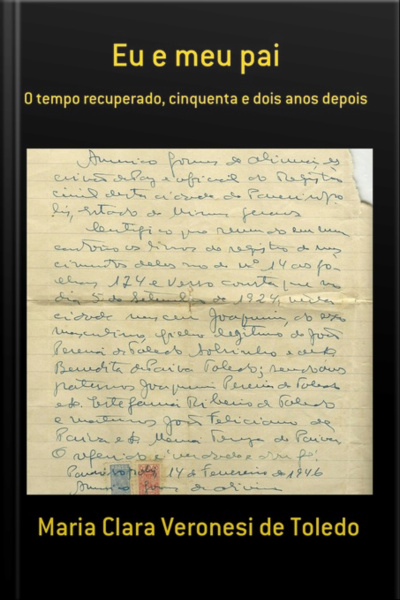 Eu e meu pai
O tempo recuperado, cinquenta e dois anos depois
Americo Gomes de Oliveira, es
crivão de Paz e oficial do Registro
civil desta cidade de
estado de Minas Geraes
Certifico que revendo em meu
cartorio os livros de registro de nas
cimentos deles no de nº 14 ao fo-
lhas 174 e verso consta que no
dia 5 de Setembro de 1924, nesta
cidade nasceu Joaquim, do sexo
masculino, filho legitimo de João
Pereira de Toledo Sobrinho e de
Benedita de Paiva Toledo; sendo avos
paternos Joaquim Pereira de Toledo
e d. Estefania Ribeiro de Toledo
e maternos João Feliciano de
Paiva e d. Maria Tereza de Paiva
O referido é verdade e dou fé.
14 de Fevereiro de 1946
Americo Gomes de Oliveira
Maria Clara Veronesi de Toledo